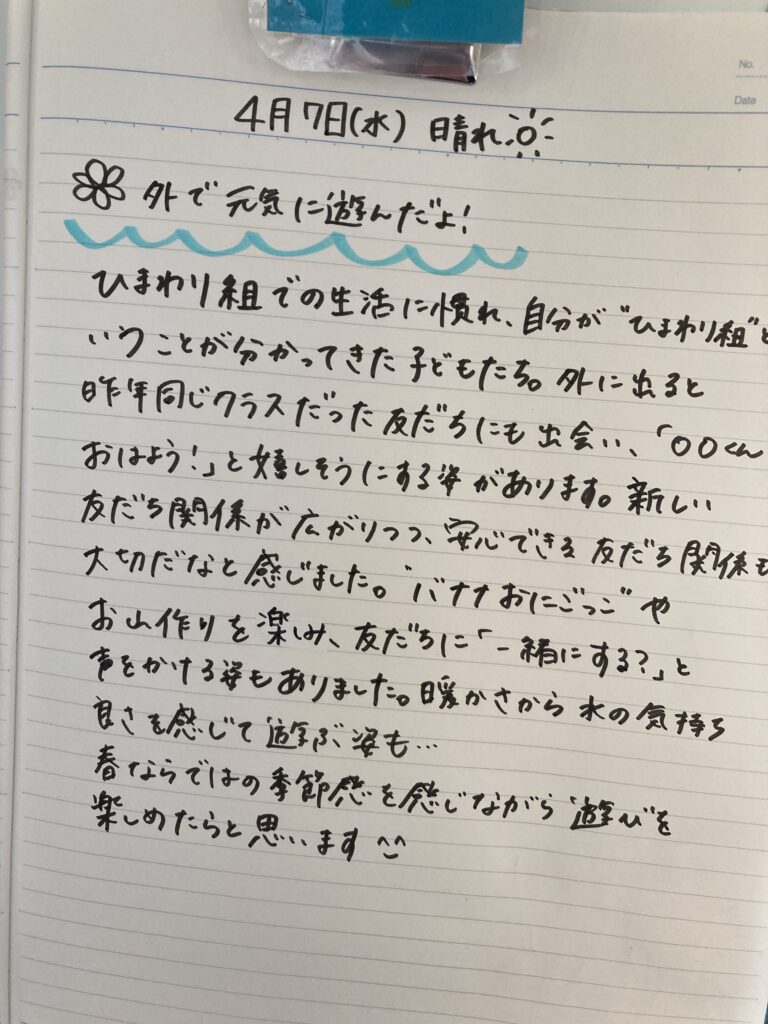 No.
Date
4月7日(水) 晴れ
外で元気に遊んだよ!
ひまわり組での生活に慣れ、自分が"ひまわり組"と
いうことが分かってきた子どもたち。外に出ると
昨年同じクラスだった友だちにも出会い、「〇〇くん
おはよう!」と嬉しそうにする姿があります。新しい
友だち関係が広がりつつ、安心できる友だち関係も
大切だなと感じました。"バナナおにごっこ"や
お山作りを楽しみ、友だちに「一緒にする?」と
声をかける姿もありました。暖かさから水の気持ち
良さを感じて遊ぶ姿も…
春ならではの季節感を感じながら遊びを
楽しめたらと思います^^